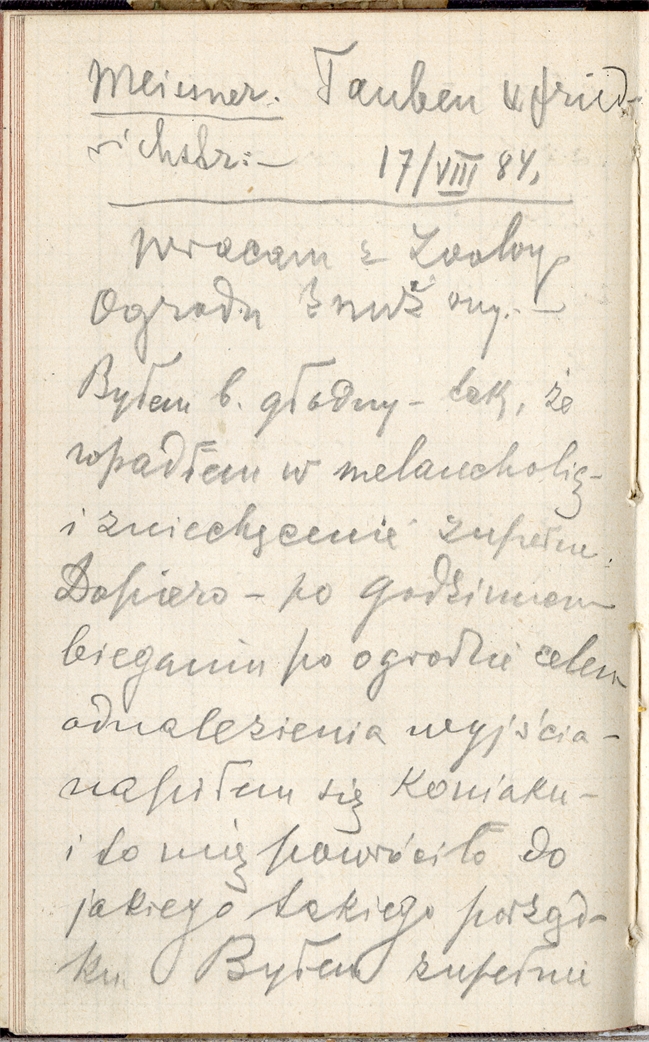 Meissner. Tauben u fried-
richstr: —
17/VIII 84,
Wracam z Zoolog.
Ogrodu znużony. —
Byłem b. głodny — tak, że
wpadłem w melancholię —
i zniechęcenie zupełne.
Dopiero — po godzinnem
bieganiu po ogrodzie celem
odnalezienia wyjścia —
napiłem się Koniaku —
i to mię powróciło do
jakiego takiego porząd-
ku. Byłem zupełnie